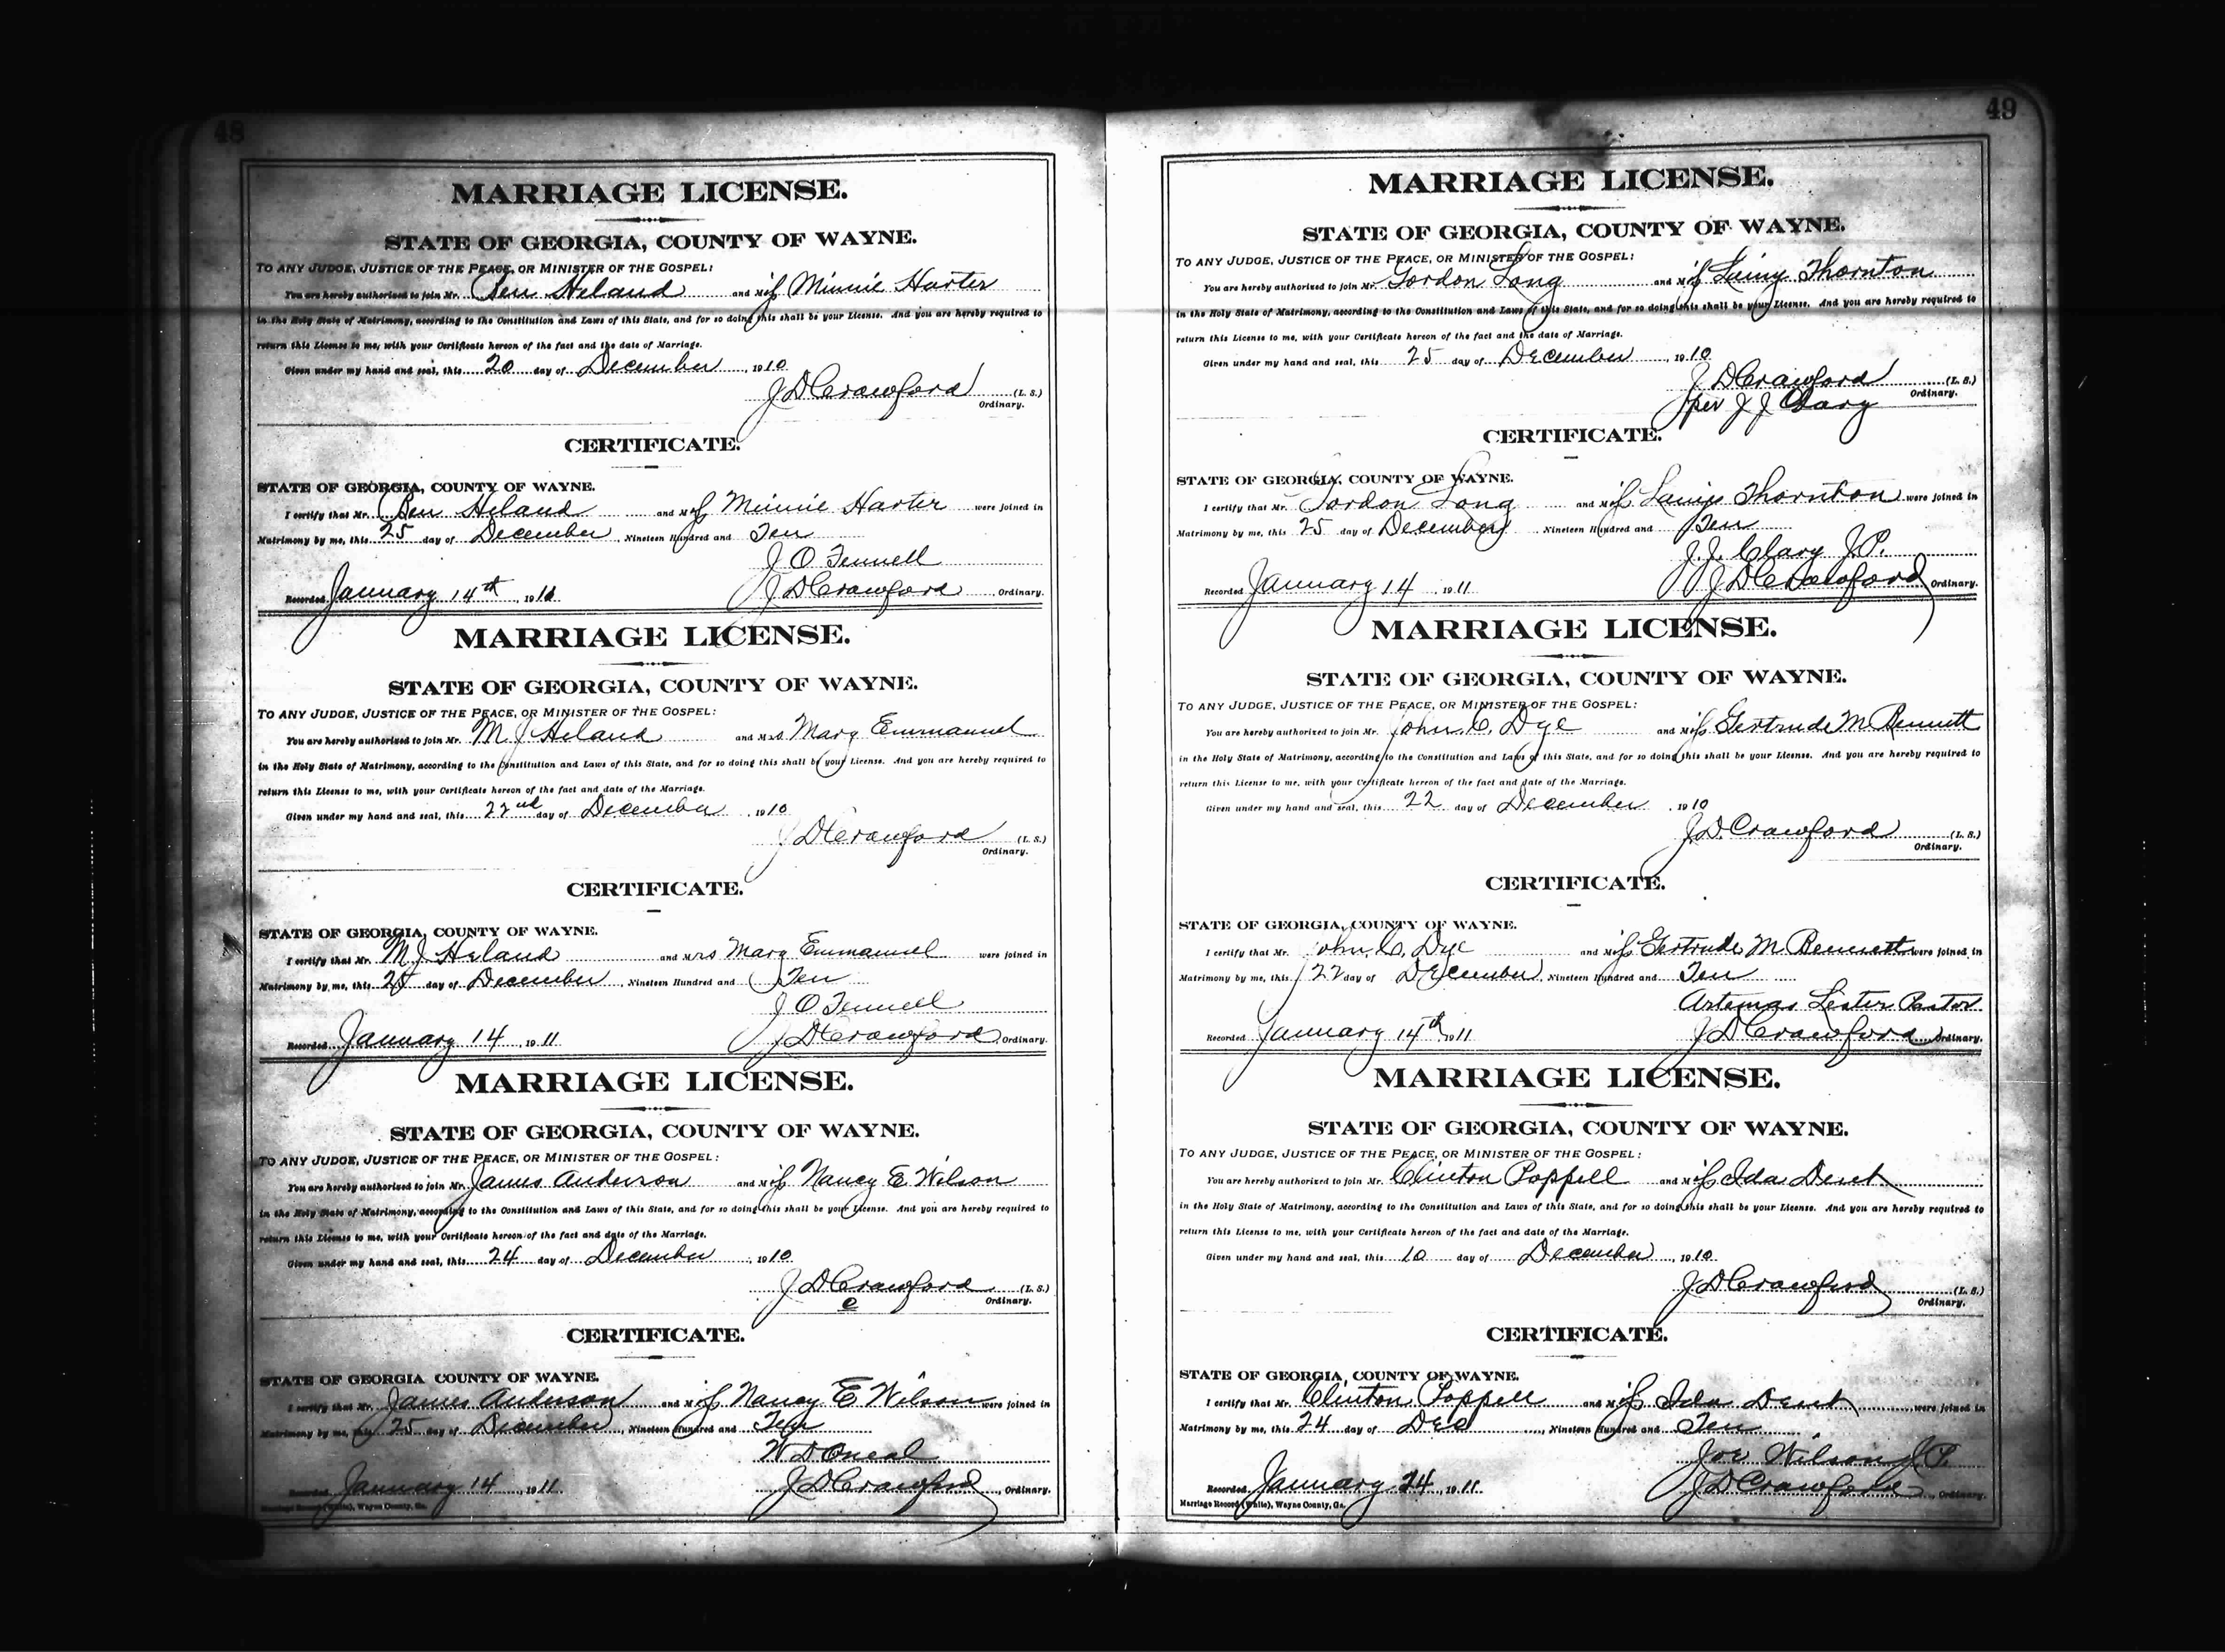 48
MARRIAGE LICENSE.
STATE OF GEORGIA, COUNTY OF WAYNE.
TO ANY JUDGE, JUSTICE OF THE PEACE, OR MINISTER OF THE GOSPEL:
You are hereby authorized to join Mr. Ben Heland and Miss Minnie Harter
in the Holy State of Matrimony, according to the Constitution and Laws of this State, and for so doing this shall be your License. And you are hereby required to
return this License to me, with your Certificate hereon of the fact and the date of Marriage.
Given under my hand and seal, this 20 day of December, 1910
J D Crawford (L. S.)
Ordinary.
CERTIFICATE.
STATE OF GEORGIA, COUNTY OF WAYNE.
I certify that Mr. Ben Heland and Miss Minnie Harter were joined in
Matrimony by me, this 25 day of December, Nineteen Hundred and Ten
J. O Fennell
Recorded January 14th, 1911 J D Crawford, Ordinary.
MARRIAGE LICENSE.
STATE OF GEORGIA, COUNTY OF WAYNE.
TO ANY JUDGE, JUSTICE OF THE PEACE, OR MINISTER OF THE GOSPEL:
You are hereby authorized to join Mr. M. J Heland and Mrs Mary Emmanuel
in the Holy State of Matrimony, according to the Constitution and Laws of this State, and for so doing this shall be your License. And you are hereby required to
return this License to me, with your Certificate hereon of the fact and date of the Marriage.
Given under my hand and seal, this 22nd day of December, 1910
J D Crawford (L. S.)
Ordinary.
CERTIFICATE.
STATE OF GEORGIA, COUNTY OF WAYNE.
I certify that Mr. M. J Heland and Mrs Mary Emmanuel were joined in
Matrimony by me, this day of December, Nineteen Hundred and Ten
J O Fennell
Recorded January 14, 1911 J D Crawford Ordinary.
MARRIAGE LICENSE.
STATE OF GEORGIA, COUNTY OF WAYNE.
TO ANY JUDGE, JUSTICE OF THE PEACE, OR MINISTER OF THE GOSPEL:
You are hereby authorized to join Mr. James Anderson and Miss Nancy E Wilson
in the Holy State of Matrimony, according to the Constitution and Laws of this State, and for so doing this shall be your License. And you are hereby required to
return this License to me, with your Certificate hereon of the fact and date of the Marriage.
Given under my hand and seal, this 24 day of December, 1910
J D Crawford (L. S.)
e Ordinary.
CERTIFICATE.
STATE OF GEORGIA COUNTY OF WAYNE.
I certify that Mr. James Anderson and Miss Nancy E Wilson were joined in
Matrimony by me, this 25 day of December, Nineteen Hundred and Ten
W D Oneal
Recorded January 14, 1911. J D Crawford, Ordinary.
Marriage Record (White), Wayne County, Ga.
49
MARRIAGE LICENSE.
STATE OF GEORGIA, COUNTY OF WAYNE.
TO ANY JUDGE, JUSTICE OF THE PEACE, OR MINISTER OF THE GOSPEL:
You are hereby authorized to join Mr. Gordon Long and Miss Thornton
in the Holy State of Matrimony, according to the Constitution and Laws of this State, and for so doing this shall be your License. And you are hereby required to
return this License to me, with your Certificate hereon of the fact and the date of Marriage.
Given under my hand and seal, this 25 day of December, 1910
J D Crawford (L. S.)
per J J Clary Ordinary.
CERTIFICATE.
STATE OF GEORGIA, COUNTY OF WAYNE.
I certify that Mr. Gordon Long and Miss Thornton were joined in
Matrimony by me, this 25 day of December, Nineteen Hundred and Ten
J. J. Clary J. P.
Recorded January 14, 1911 J D Crawford Ordinary.
MARRIAGE LICENSE.
STATE OF GEORGIA, COUNTY OF WAYNE.
TO ANY JUDGE, JUSTICE OF THE PEACE, OR MINISTER OF THE GOSPEL:
You are hereby authorized to join Mr. John. C. Dye and Miss Gertrude M Bennett
in the Holy State of Matrimony, according to the Constitution and Laws of this State, and for so doing this shall be your License. And you are hereby required to
return this License to me, with your Certificate hereon of the fact and date of the Marriage.
Given under my hand and seal, this 22 day of December, 1910
J. D. Crawford (L. S.)
Ordinary.
CERTIFICATE.
STATE OF GEORGIA, COUNTY OF WAYNE.
I certify that Mr. John. C. Dye and Miss Gertrude M Bennett were joined in
Matrimony by me, this 22 day of December, Nineteen Hundred and Ten
Artemas Lester Pastor
Recorded January 14th, 1911 J D Crawford, Ordinary.
MARRIAGE LICENSE.
STATE OF GEORGIA, COUNTY OF WAYNE.
TO ANY JUDGE, JUSTICE OF THE PEACE, OR MINISTER OF THE GOSPEL:
You are hereby authorized to join Mr. Clinton Poppell and Miss Ida Dent
in the Holy State of Matrimony, according to the Constitution and Laws of this State, and for so doing this shall be your License. And you are hereby required to
return this License to me, with your Certificate hereon of the fact and date of the Marriage.
Given under my hand and seal, this 10 day of December, 1910.
J D Crawford (L. S.)
Ordinary.
CERTIFICATE.
STATE OF GEORGIA, COUNTY OF WAYNE.
I certify that Mr. Clinton Poppell and Miss Ida Dent were joined in
Matrimony by me, this 24 day of Dec, Nineteen Hundred and Ten
Joe Wilson J. P.
Recorded January 24, 1911. J D Crawford, Ordinary.
Marriage Record (White), Wayne County, Ga.